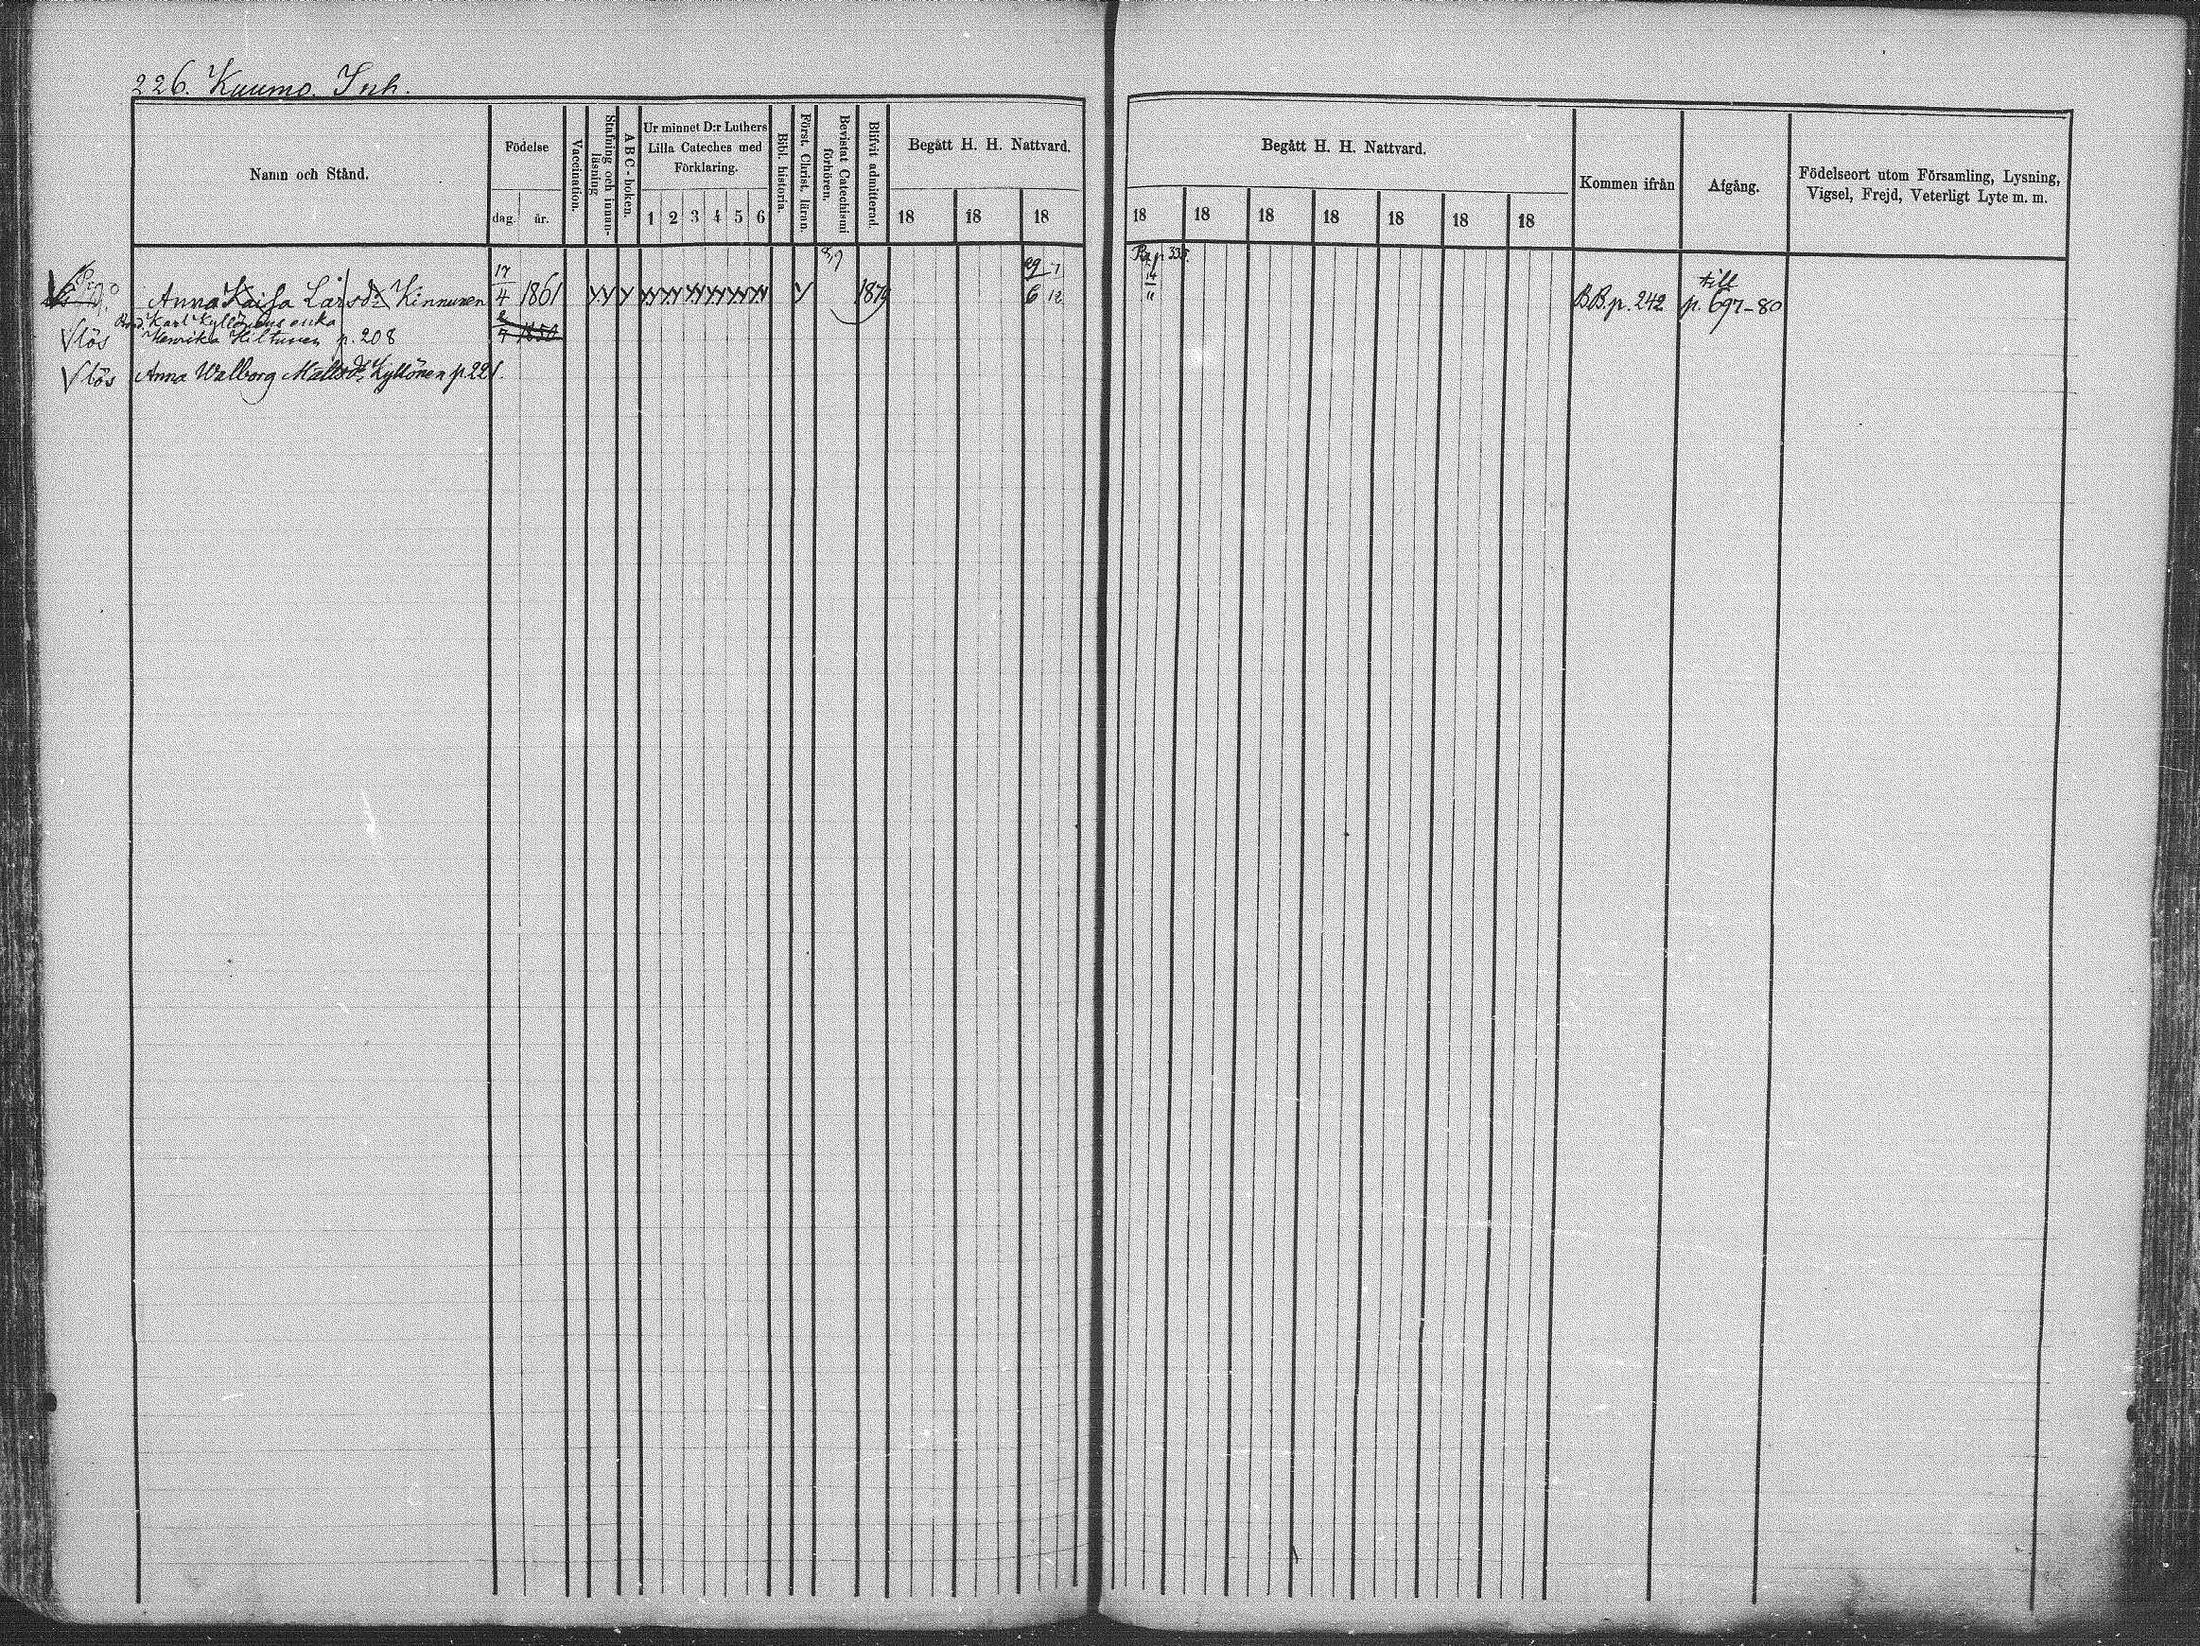 226. Kuumo. Inh.
Namn och Stånd.
Födelse
dag. år.
Vaccination.
Stafning och innan-
läsning
A B C - boken.
Ur minnet D:r Luthers
Lilla Cateches med
Förklaring.
1 2 3 4 5 6
Bibl. historia.
Först. Christ. läran.
Bevistat Catechismi
förhören.
Blifvit admitterad.
Begått H. H. Nattvard.
18 18 18
Begått H. H. Nattvard.
18 18 18 18 18 18 18
Kommen ifrån
Afgång.
Födelseort utom Församling, Lysning,
Vigsel, Frejd, Veterligt Lyte m. m.
Anna Kaisa Larsd:r Kinnunen 17/4 1861 1879 29/6 7/12 14/11 BB. p. 242 till p. 697-80
lös Karl Kyllönens enka
Henrika Hiltunen p. 208 2/7 1850
lös Anna Walborg Mattsd:r Kyllönen p. 221.